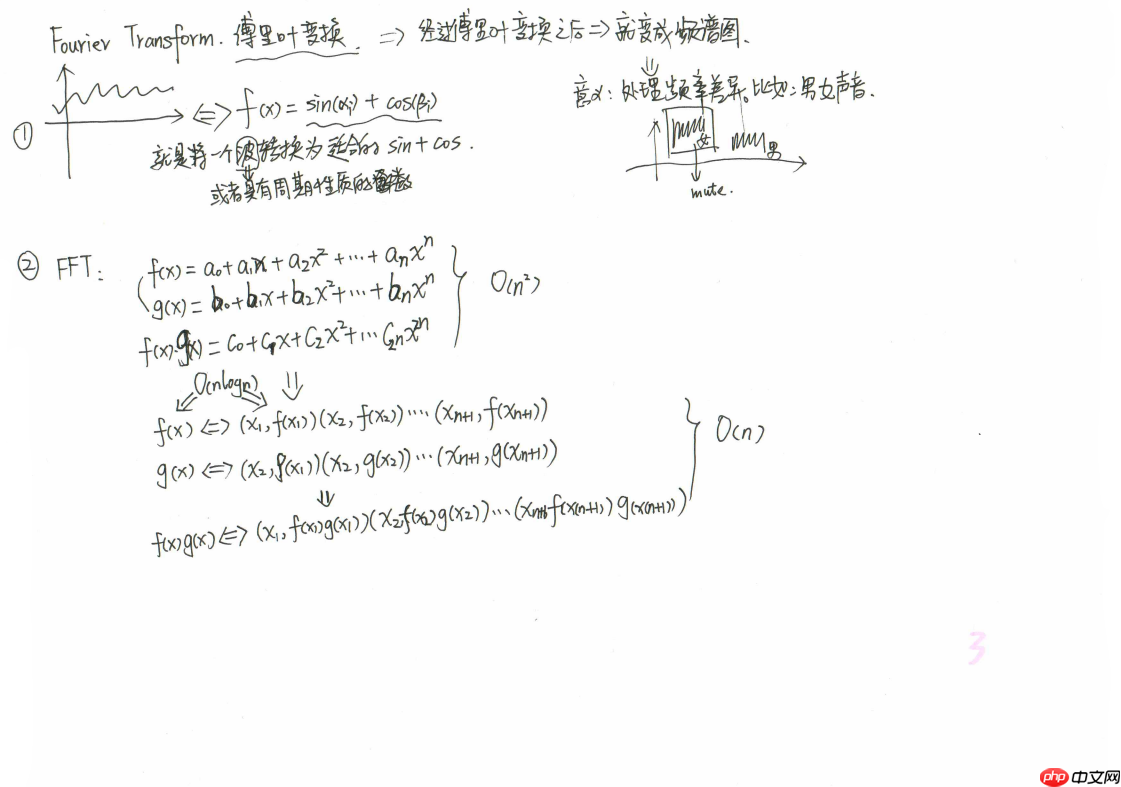 Fourier Transform. 傅里叶变换. => 经过傅里叶变换之后 => 就变成频谱图.
意义: 处理频率差异。比如: 男女声音.
① <=> f(x) = sin(αi) + cos(βi)
就是将一个波转换为适合的 sin + cos.
或者具有周期性质的函数
女 男
mute.
② FFT: f(x) = a0 + a1x + a2x² + ... + anxⁿ
g(x) = b0 + b1x + b2x² + ... + bnxⁿ O(n²)
f(x)·g(x) = C0 + C1x + C2x² + ... C2nx²ⁿ
O(nlogn)
f(x) <=> (x1, f(x1))(x2, f(x2)) .... (xn+1, f(xn+1))
O(n)
g(x) <=> (x2, g(x1))(x2, g(x2)) ... (xn+1, g(xn+1))
f(x)g(x) <=> (x1, f(x1)g(x1))(x2, f(x2)g(x2)) ... (xn+1 f(x(n+1)) g(x(n+1)))
3
php 中文网